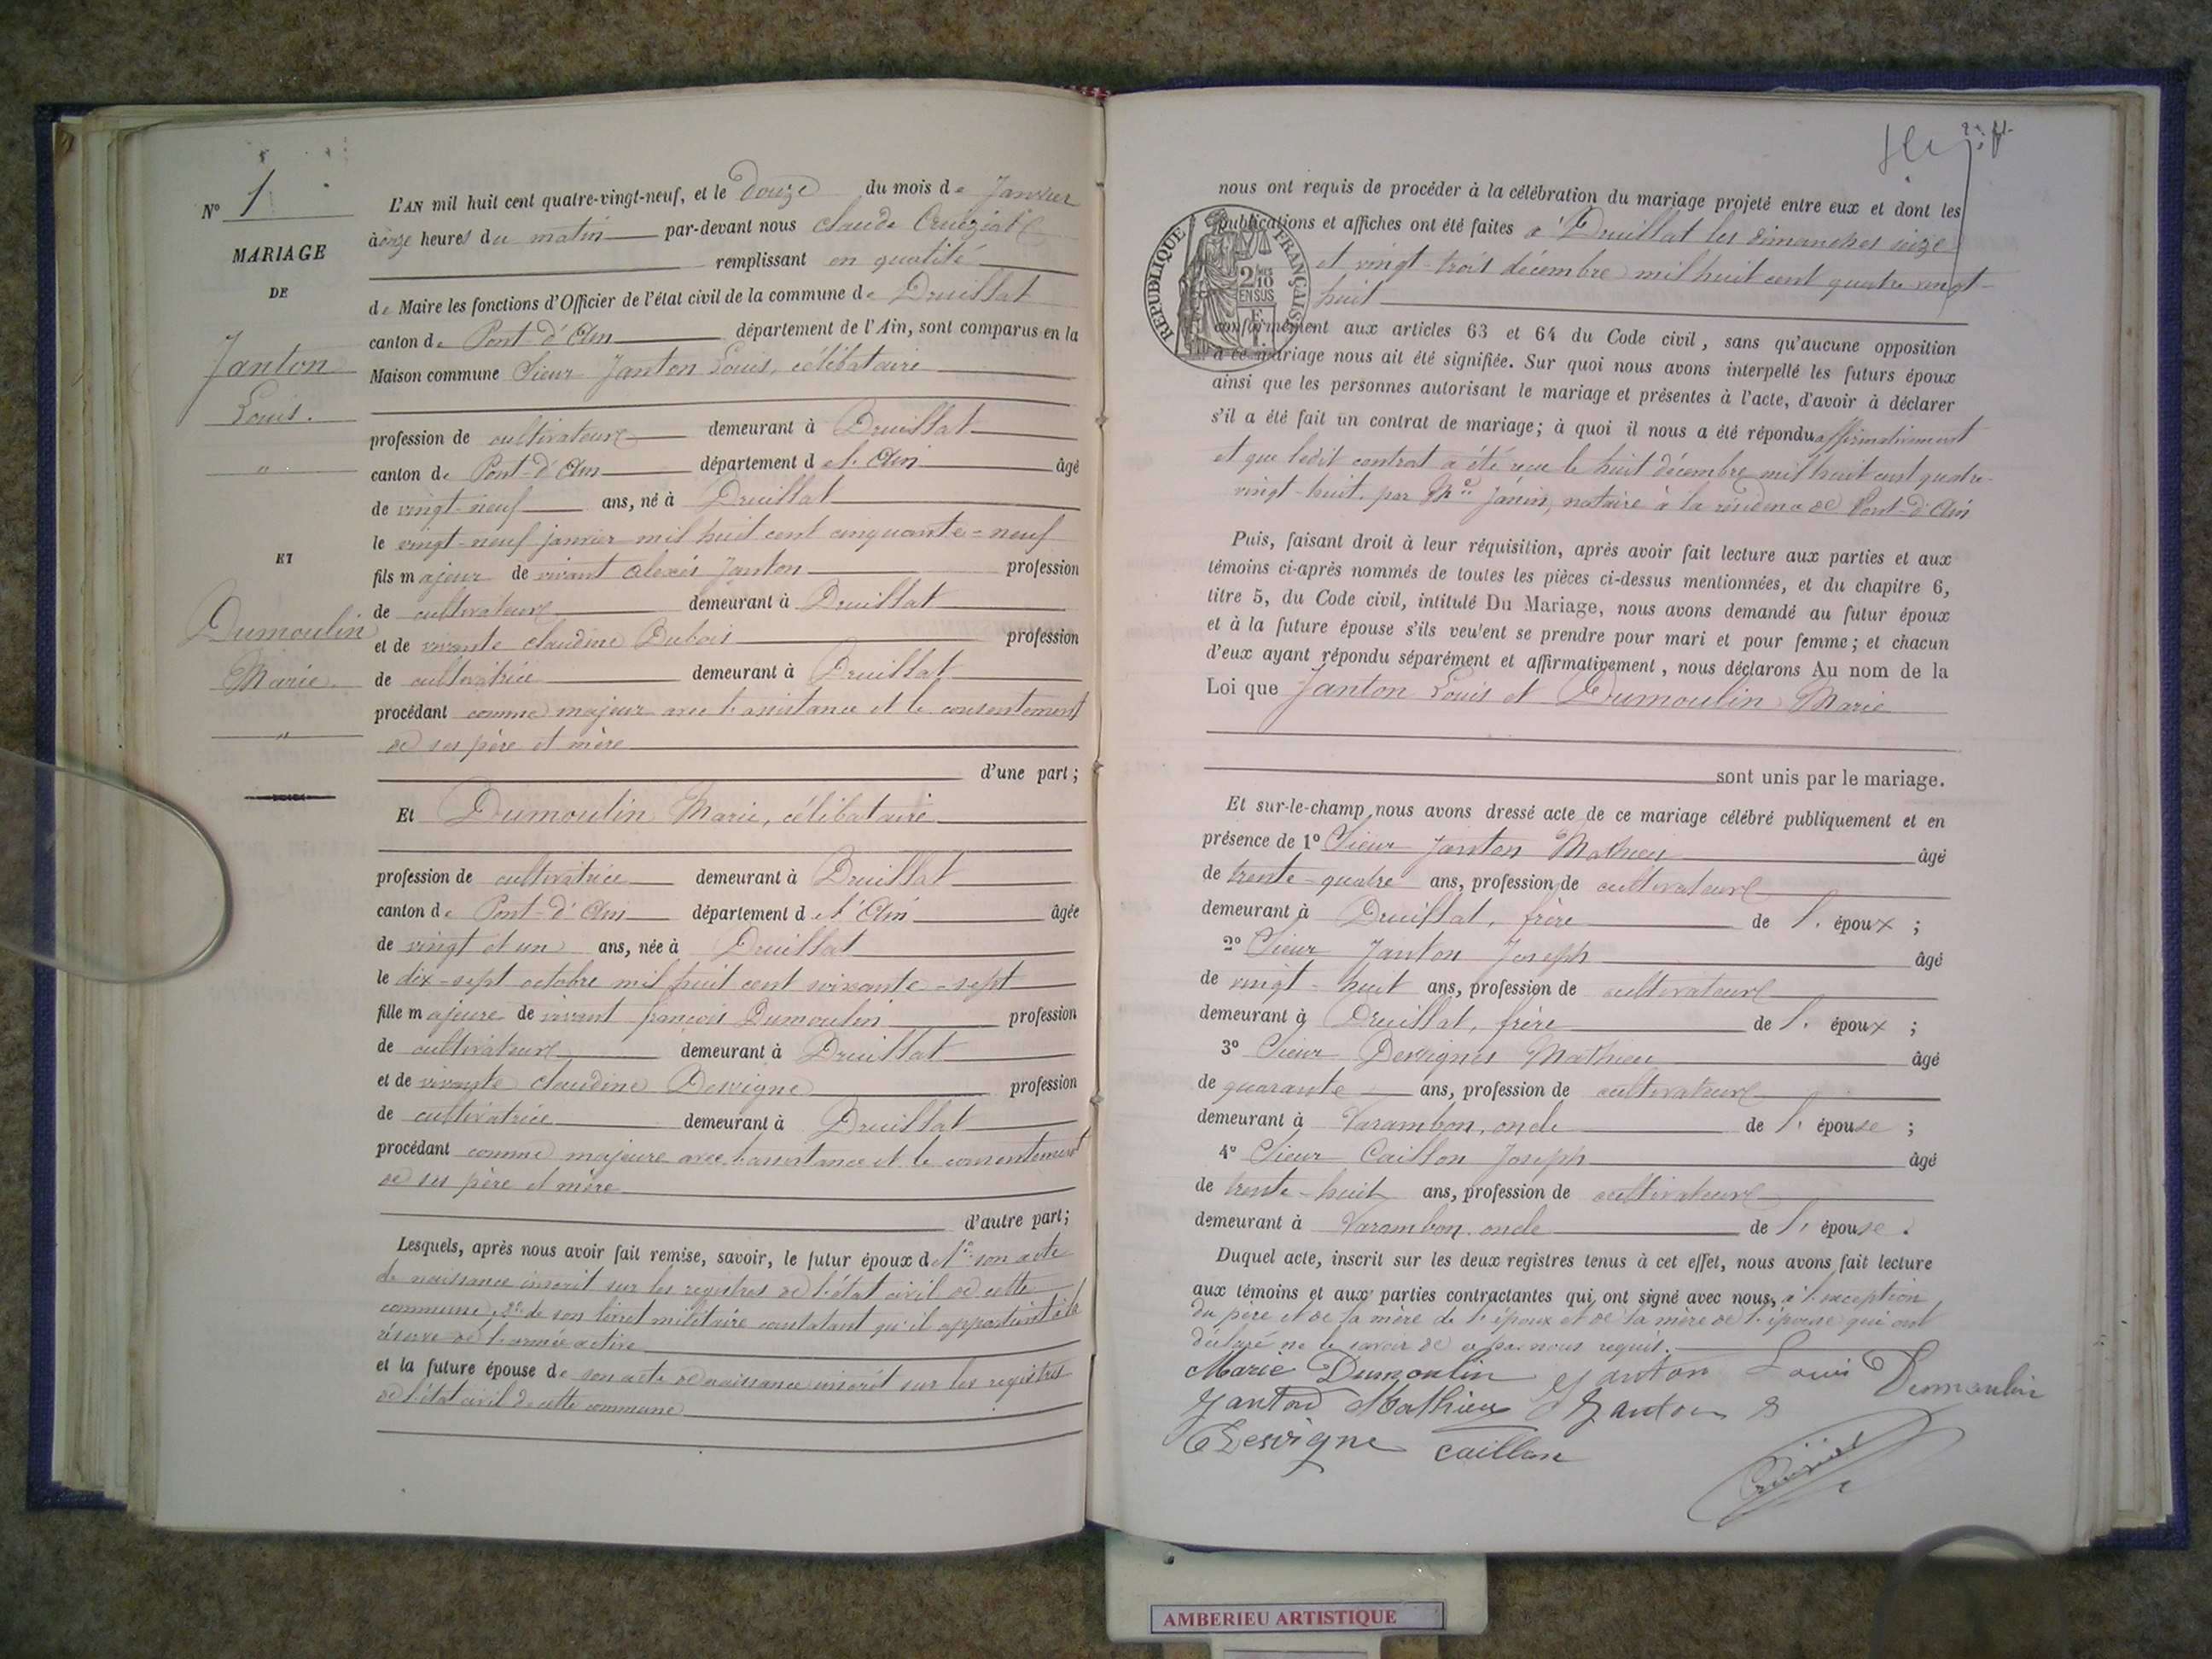 N° 1
MARIAGE
DE
Janton
Louis.
"
ET
Dumoulin
Marie.
"
L'AN mil huit cent quatre-vingt-neuf, et le douze du mois de Janvier
à onze heures du matin par-devant nous Claude Cruiziat
remplissant en qualité
de Maire les fonctions d'Officier de l'état civil de la commune de Druillat
canton de Pont-d'Ain département de l'Ain, sont comparus en la
Maison commune Sieur Janton Louis, célibataire
profession de cultivateur demeurant à Druillat
canton de Pont-d'Ain département de l'Ain âgé
de vingt-neuf ans, né à Druillat
le vingt-neuf janvier mil huit cent cinquante-neuf
fils majeur de vivant alexis Janton profession
de cultivateur demeurant à Druillat
et de vivante claudine Dubois profession
de cultivatrice demeurant à Druillat
procédant comme majeur avec l'assistance et le consentement
de ses père et mère
d'une part;
Et Dumoulin Marie, célibataire
profession de cultivatrice demeurant à Druillat
canton de Pont-d'Ain département de l'Ain âgée
de vingt et un ans, née à Druillat
le dix-sept octobre mil huit cent soixante-sept
fille majeure de vivant françois Dumoulin profession
de cultivateur demeurant à Druillat
et de vivante claudine Desvigne profession
de cultivatrice demeurant à Druillat
procédant comme majeure avec l'assistance et le consentement
de ses père et mère
d'autre part;
Lesquels, après nous avoir fait remise, savoir, le futur époux de 1° son acte
de naissance inscrit sur les registres de l'état civil de cette
commune, 2° de son livret militaire constatant qu'il appartient à la
réserve de l'armée active
et la future épouse de son acte de naissance inscrit sur les registres
de l'état civil de cette commune
nous ont requis de procéder à la célébration du mariage projeté entre eux et dont les
publications et affiches ont été faites à Druillat les dimanches seize
et vingt-trois décembre mil huit cent quatre vingt-
huit
RÉPUBLIQUE FRANÇAISE
2/10
EN SUS
conformément aux articles 63 et 64 du Code civil, sans qu'aucune opposition
à ce mariage nous ait été signifiée. Sur quoi nous avons interpellé les futurs époux
ainsi que les personnes autorisant le mariage et présentes à l'acte, d'avoir à déclarer
s'il a été fait un contrat de mariage; à quoi il nous a été répondu affirmativement
et que ledit contrat a été reçu le huit décembre mil huit cent quatre-
vingt-huit par Me Janin, notaire à la résidence de Pont-d'Ain
Puis, faisant droit à leur réquisition, après avoir fait lecture aux parties et aux
témoins ci-après nommés de toutes les pièces ci-dessus mentionnées, et du chapitre 6,
titre 5, du Code civil, intitulé Du Mariage, nous avons demandé au futur époux
et à la future épouse s'ils veulent se prendre pour mari et pour femme; et chacun
d'eux ayant répondu séparément et affirmativement, nous déclarons Au nom de la
Loi que Janton Louis et Dumoulin Marie
sont unis par le mariage.
Et sur-le-champ nous avons dressé acte de ce mariage célébré publiquement et en
présence de 1° Sieur Janton Mathieu âgé
de trente-quatre ans, profession de cultivateur
demeurant à Druillat, frère de l'époux;
2° Sieur Janton Joseph âgé
de vingt-huit ans, profession de cultivateur
demeurant à Druillat, frère de l'époux;
3° Sieur Desvignes Mathieu âgé
de quarante ans, profession de cultivateur
demeurant à Varambon, oncle de l'épouse;
4° Sieur Caillon Joseph âgé
de trente-huit ans, profession de cultivateur
demeurant à Varambon, oncle de l'épouse.
Duquel acte, inscrit sur les deux registres tenus à cet effet, nous avons fait lecture
aux témoins et aux parties contractantes qui ont signé avec nous, à l'exception
du père et de la mère de l'époux et de la mère de l'épouse qui ont
déclaré ne le savoir de ce par nous requis.
Marie Dumoulin Janton Louis Dumoulin
Janton Mathieu Janton J
Desvigne Caillon
AMBERIEU ARTISTIQUE